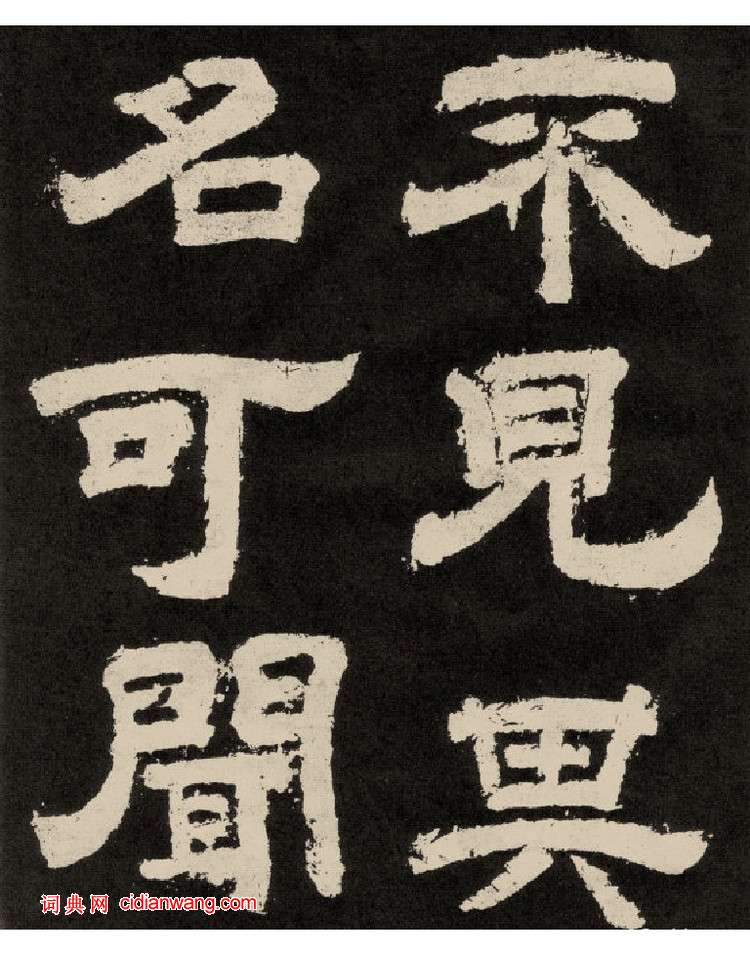 不見其
名可聞
词典网 cidianwang.com